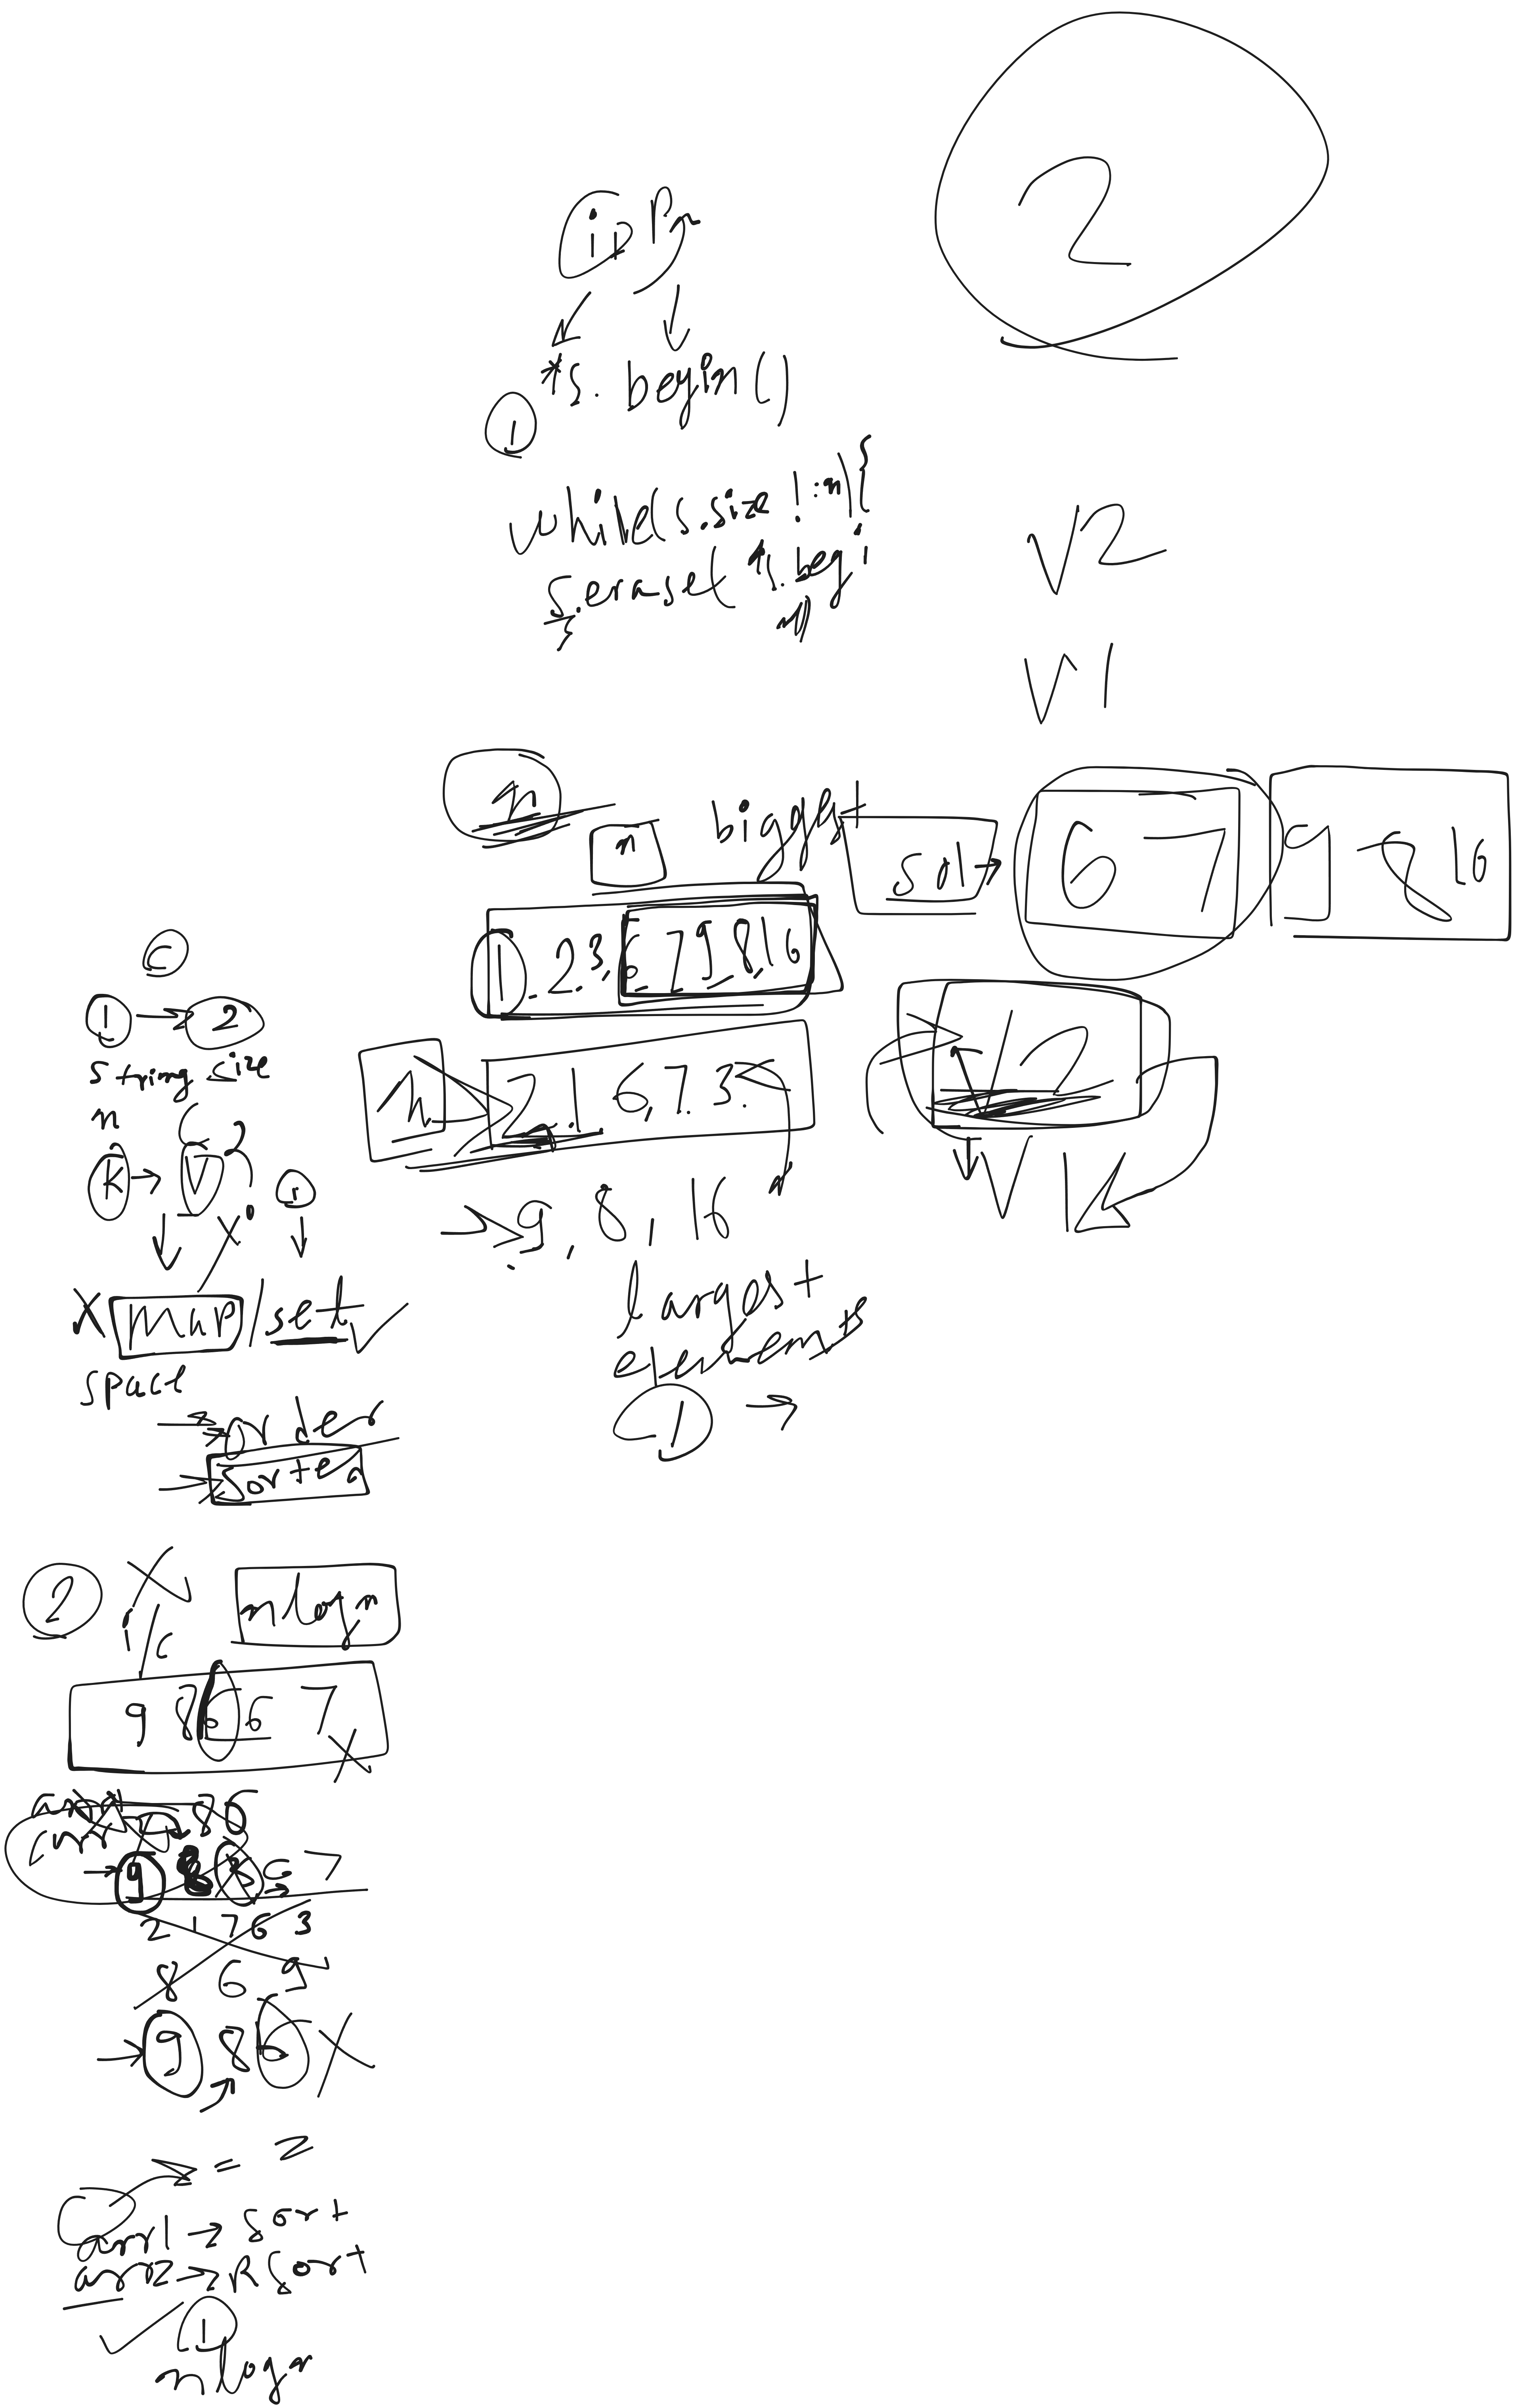 2
ip
*s. begin()
1
while(s.size != n){
s.erase(*s.begi
n)
}
V2
V1
n
n
biggest
sol →
6 7 9 8 16
1, 2, 3, 6, 7, 9, 8, 16
n
2, 1, 6, 7, 3.
V2
V1
→ 9, 8, 16
largest
elements
1 →
C
1 → 2
string size
n
k → V ?
r
X map / set ✓
space
→ order
→ sorted
2
nlogn
9 8 6 6 7
9 8 8 6 7
2 1 7 6 3
8 6 9
→ 9 8 6 X
arr1 → sort
arr2 → R sort
✓ 1
nlogn